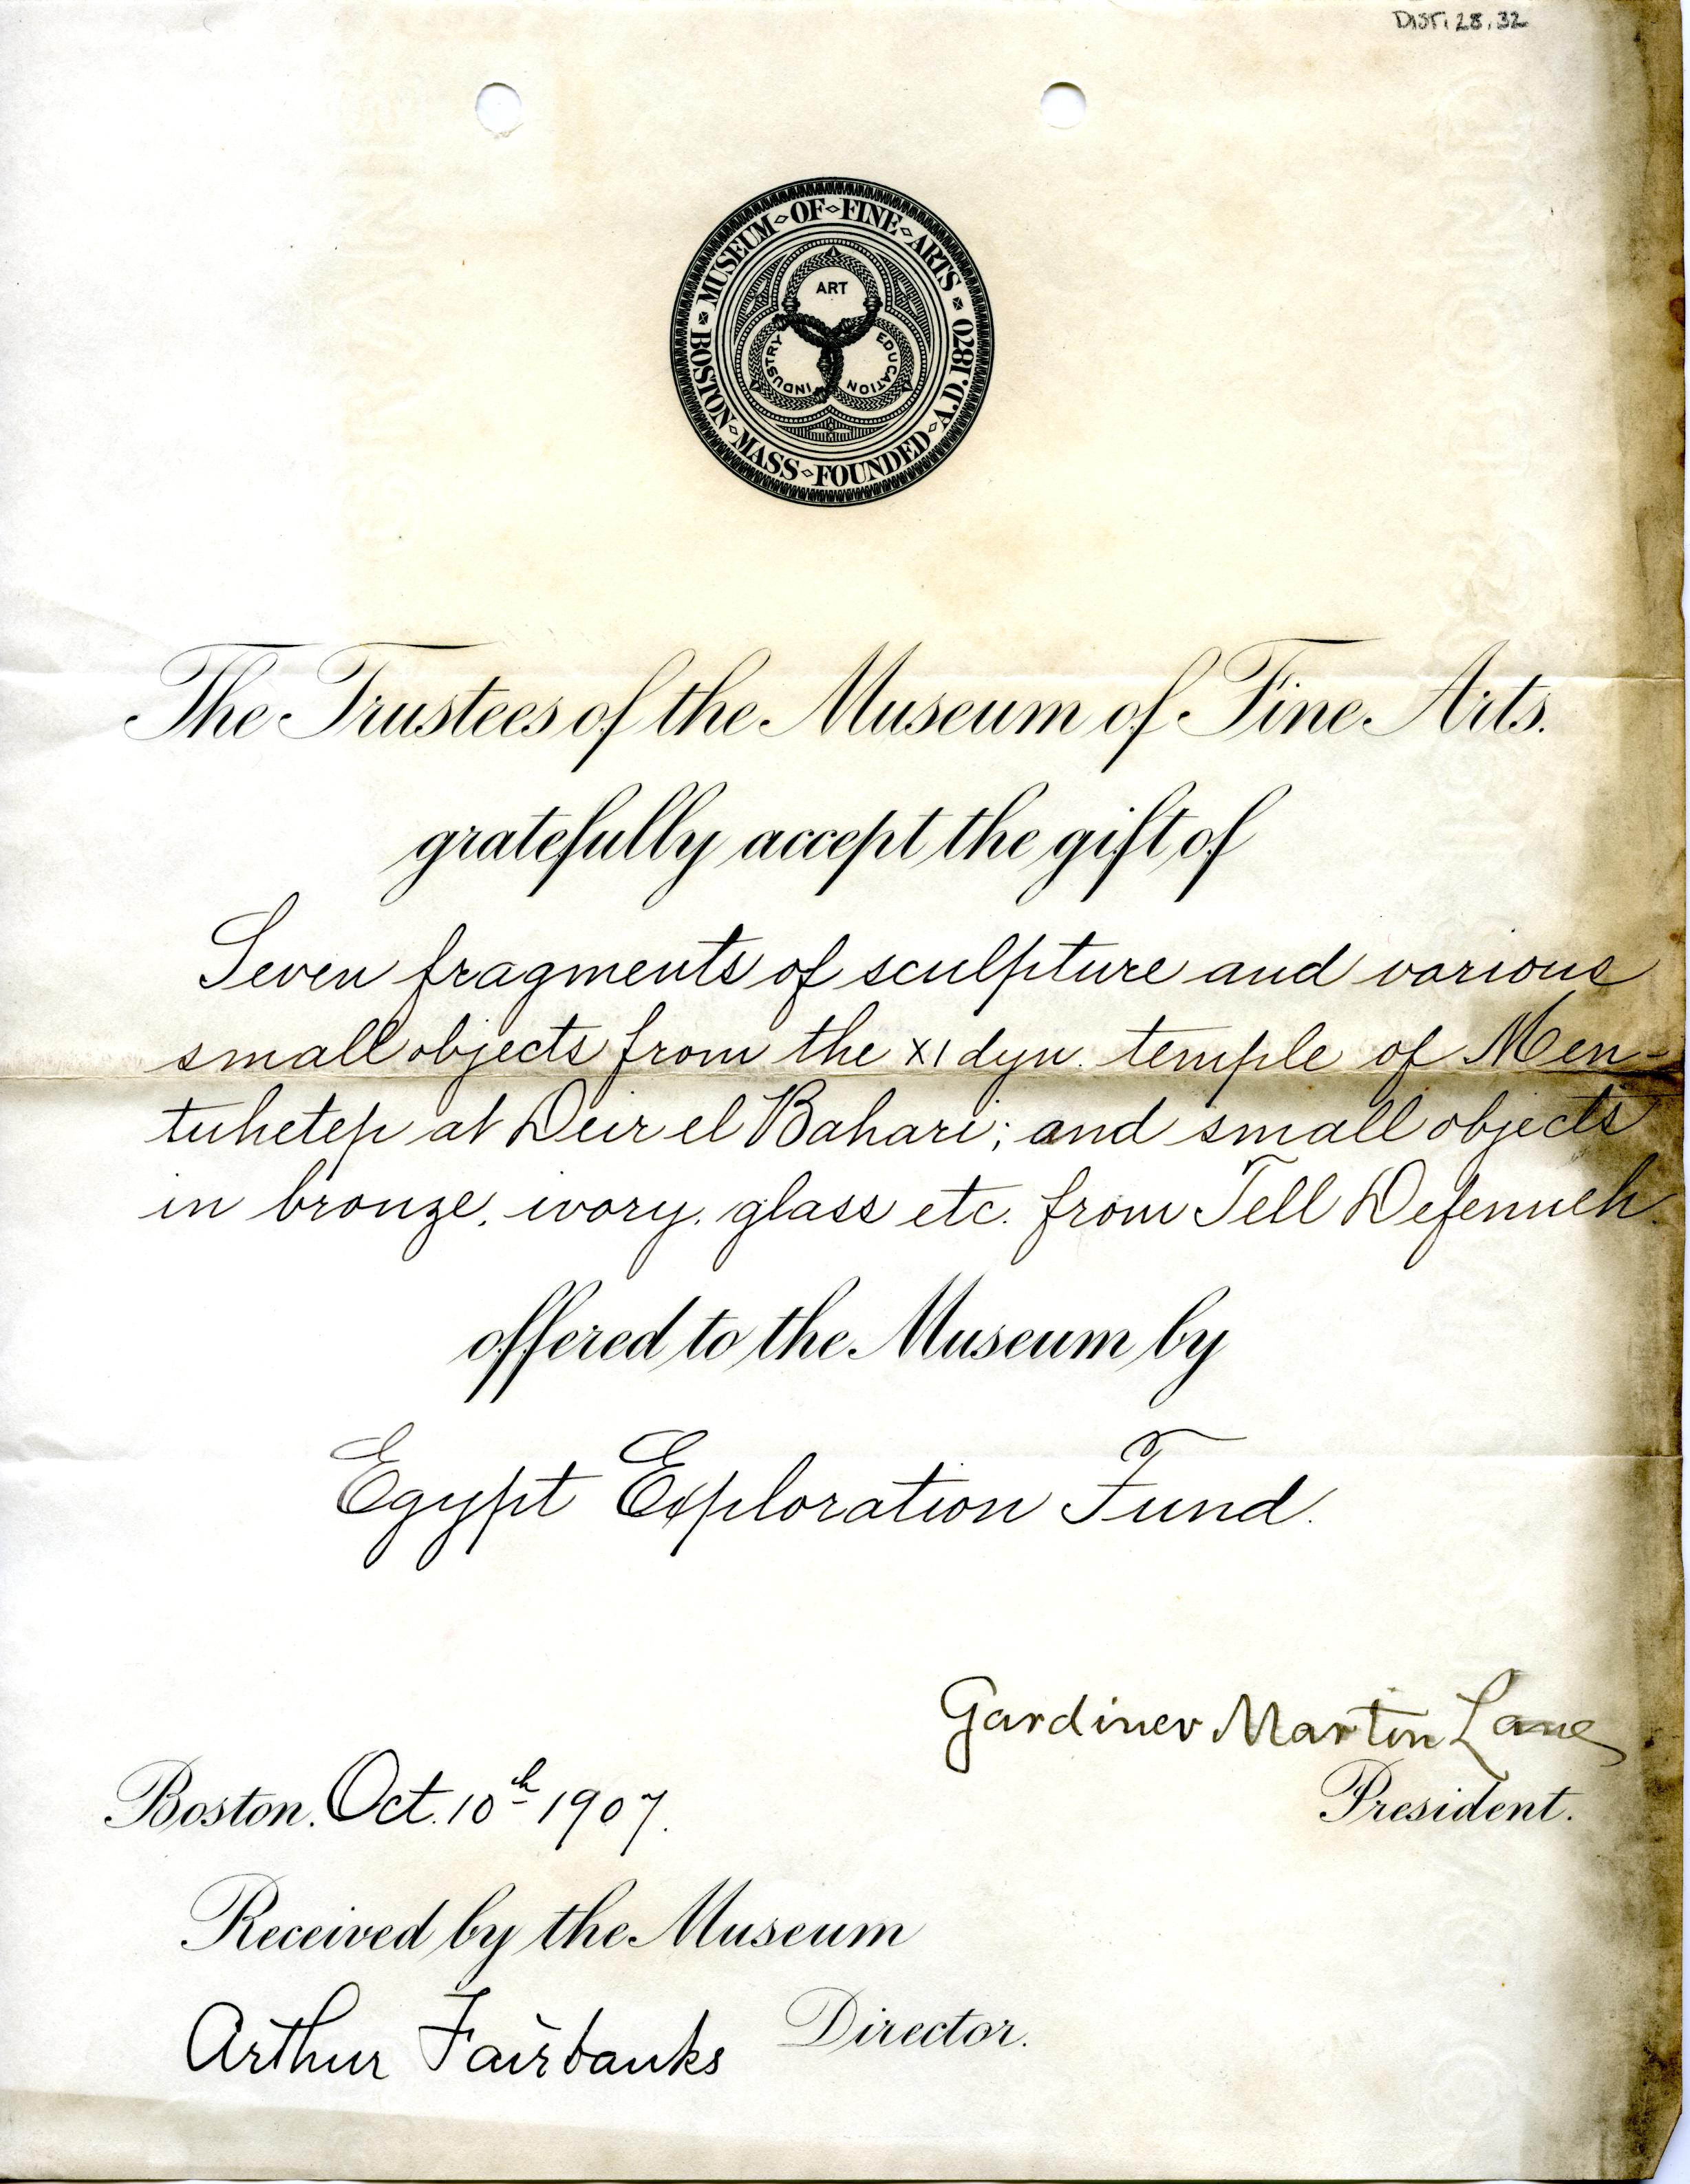 DIST. 28.32
MUSEUM OF FINE ARTS
BOSTON MASS FOUNDED A.D. 1870
ART
INDUSTRY
EDUCATION
The Trustees of the Museum of Fine Arts.
gratefully accept the gift of
Seven fragments of sculpture and various
small objects from the XI dyn. temple of Men-
tuhetep at Deir el Bahari; and small objects
in bronze, ivory, glass etc. from Tell Defenneh.
offered to the Museum by
Egypt Exploration Fund.
Gardiner Martin Lane
President.
Boston. Oct. 10th 1907.
Received by the Museum
Arthur Fairbanks Director.